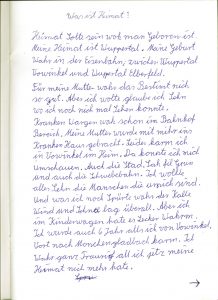 Was ist Heimat?
Heimat sollte sein wok man Geboren ist.
Meine Heimat ist Wuppertal. Meine Geburt
Wahr in der Eisenbahn, zwichen Wuppertal
Vowinkel und Wupertal Elberfeld.
Für meine Mutter wahr das Bestimt nich
so gut. Aber ich wolte glaube ich Sehn
wo ich noch nich mal Sehen konnte.
Kranken Wargen wak schon im Bahnhof
Bereich, Meine Mutter wurde mit mihr ins
Kranken Haus gebracht. Leider kam ich
in Vorwinkel im Heim. Da konnte ich mich
umschauen. Auch die Stad. Sah fiel Grün
und auch die Schwebebahn. Ich wollte
alles Sehn die Menschen die wipich sind.
Und was ich noch Spürte wahr der Kalte
Wind und Schnee lag überall. Aber ich
im Kinderwagen hate es Lecker Wahrm.
Ich wurde auch 6 Jahr alls ich von Vorwinkel.
Vort nach Mönchengladbach kam. Ich
Wahr ganz Traurig all ich jetz meine
Heimat nich mehr hate.